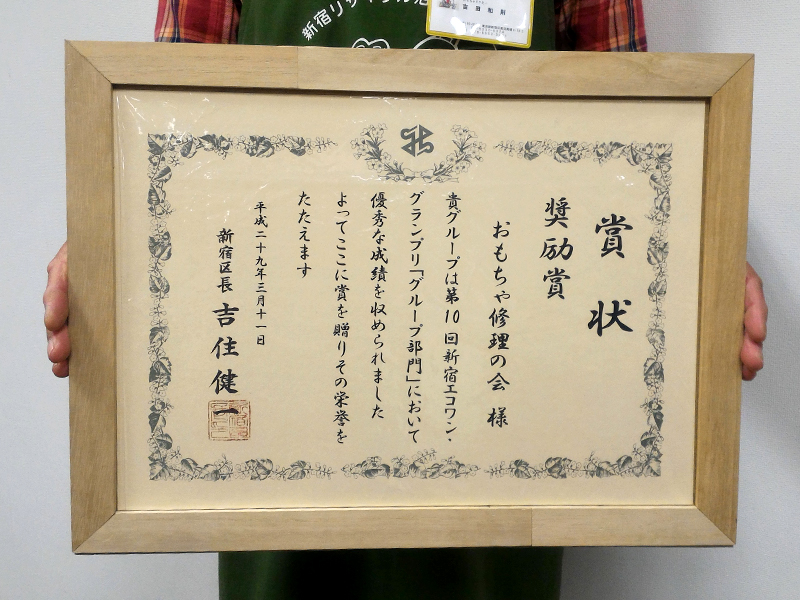 新宿リサイクル活
賞状
奨励賞
おもちゃ修理の会 様
貴グループは第10回新宿エコワン・
グランプリ「グループ部門」において
優秀な成績を収められました
よってここに賞を贈りその栄誉を
たたえます
平成二十九年三月十一日
新宿区長 吉住健一